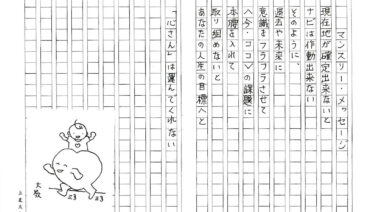 マンスリー・メッセージ
現在地が確定出来ないと
ナビは作動出来ない
そのように、
過去や未来に
意識をフラフラさせて
〈今・ココ〉の課題に
本腰を入れて
取り組めないと
あなたの人生の目標へと
「心さん」は運んでくれない